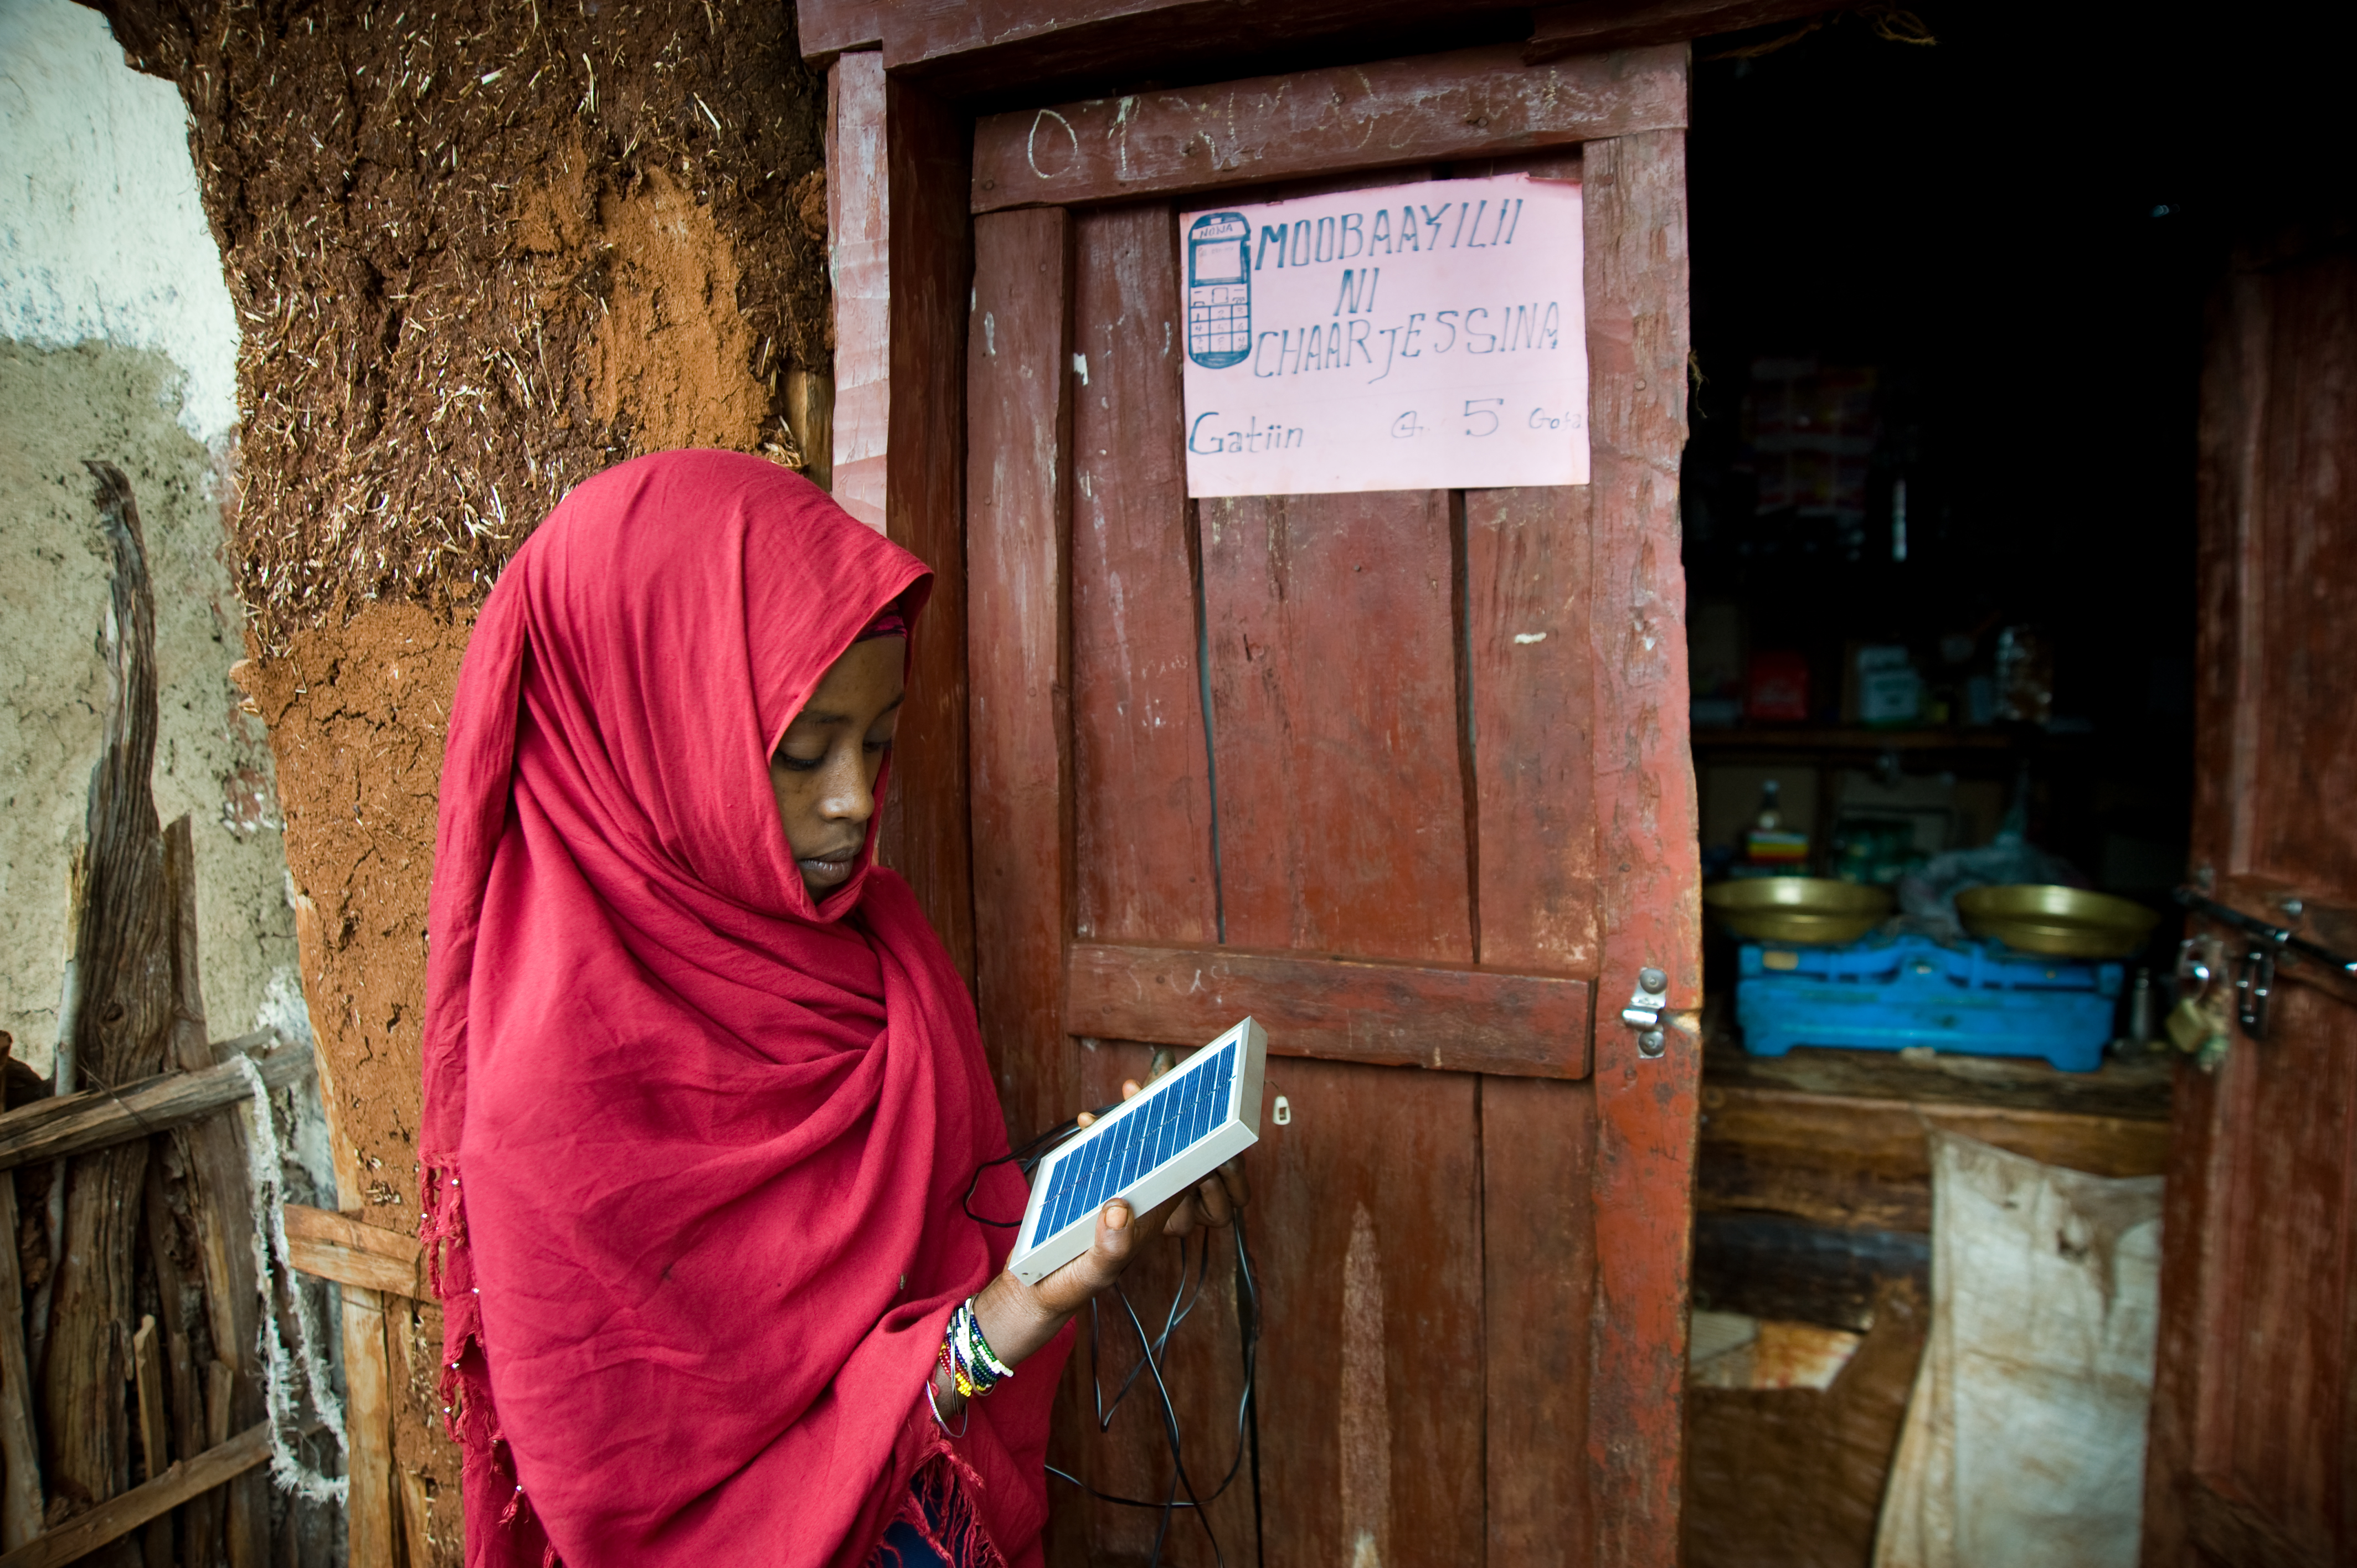 MOOBAAYILII
NI
CHAARJESSINA
Gatiin 5